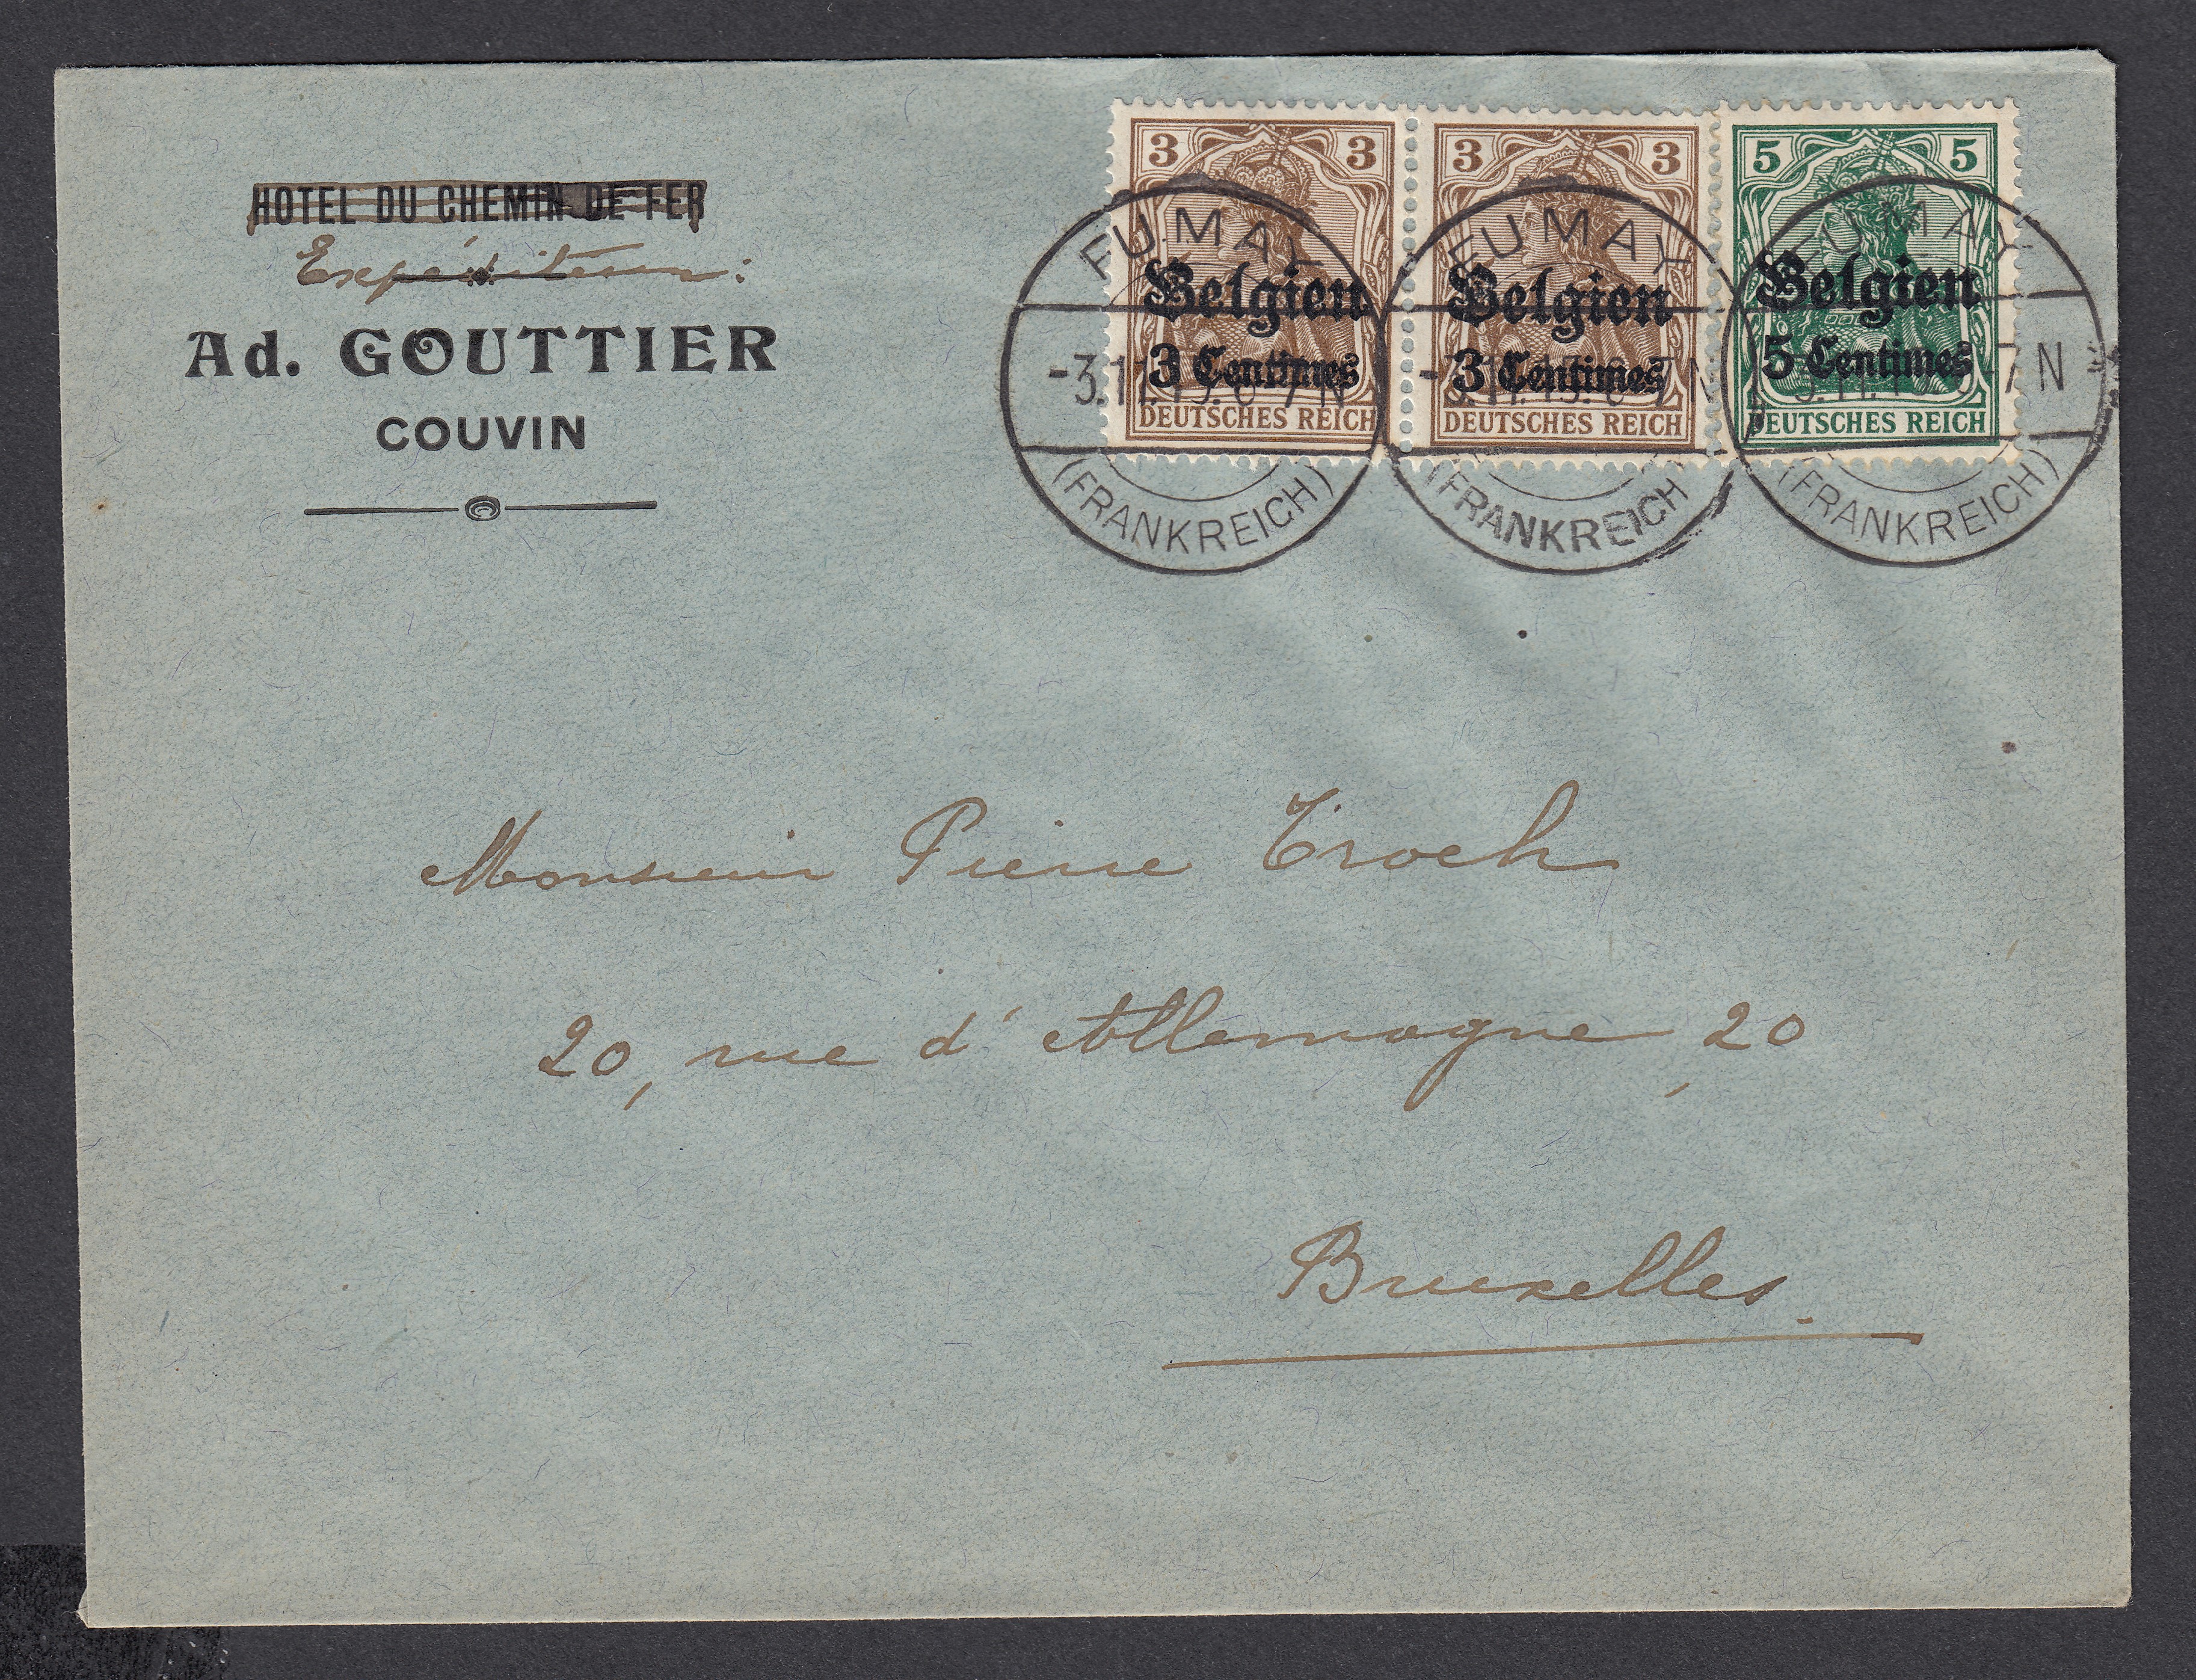 HOTEL DU CHEMIN DE FER
Expéditeur:
Ad. GOUTTIER
COUVIN
3 3
Belgien
3 Centimes
DEUTSCHES REICH
3 3
Belgien
3 Centimes
DEUTSCHES REICH
5 5
Belgien
5 Centimes
DEUTSCHES REICH
FUMAY
-3.11.15. 6-7 N
(FRANKREICH)
FUMAY
-3.11.15. 6-7 N
(FRANKREICH)
FUMAY
-3.11.15. 6-7 N
(FRANKREICH)
Monsieur Pierre Troch
20, rue d'Allemagne, 20
Bruxelles.